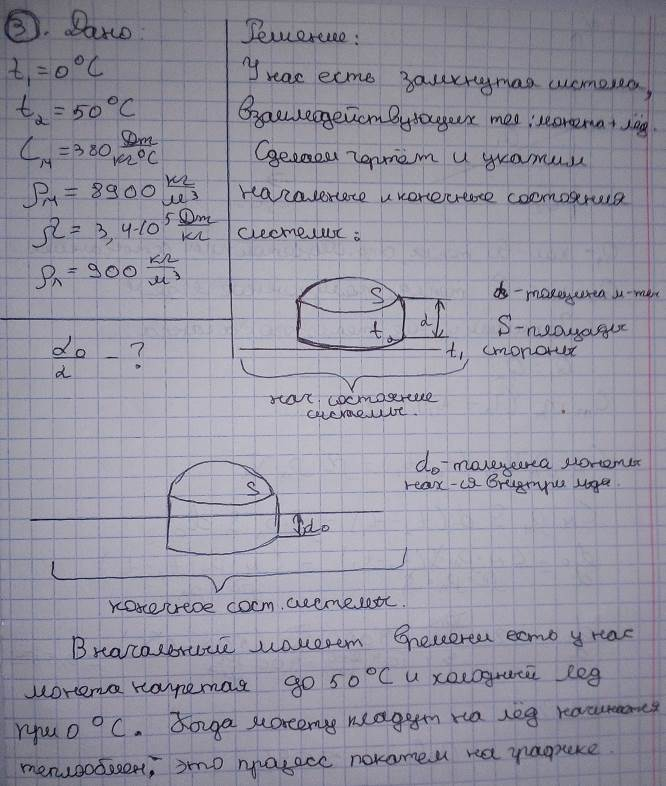 ③. Дано:
t₁ = 0°C
t₂ = 50°C
Cм = 380 Дж/кг°C
ρм = 8900 кг/м³
λ = 3,4·10⁵ Дж/кг
ρл = 900 кг/м³
d₀/d - ?
Решение:
У нас есть замкнутая система,
взаимодействующих тел: монета + лёд.
Сделаем чертёж и укажим
начальные и конечные состояния
системы:
S
t₂
d
t₁
d - толщина м-ты
S - площадь
стороны
нач. состояние
системы.
S
d₀
d₀ - толщина монеты
нах-ся внутри льда.
конечное сост. системы.
В начальный момент времени есть у нас
монета нагретая до 50°C и холодный лед
при 0°C. Когда монету кладут на лёд начинается
теплообмен, это процесс покажем на графике.